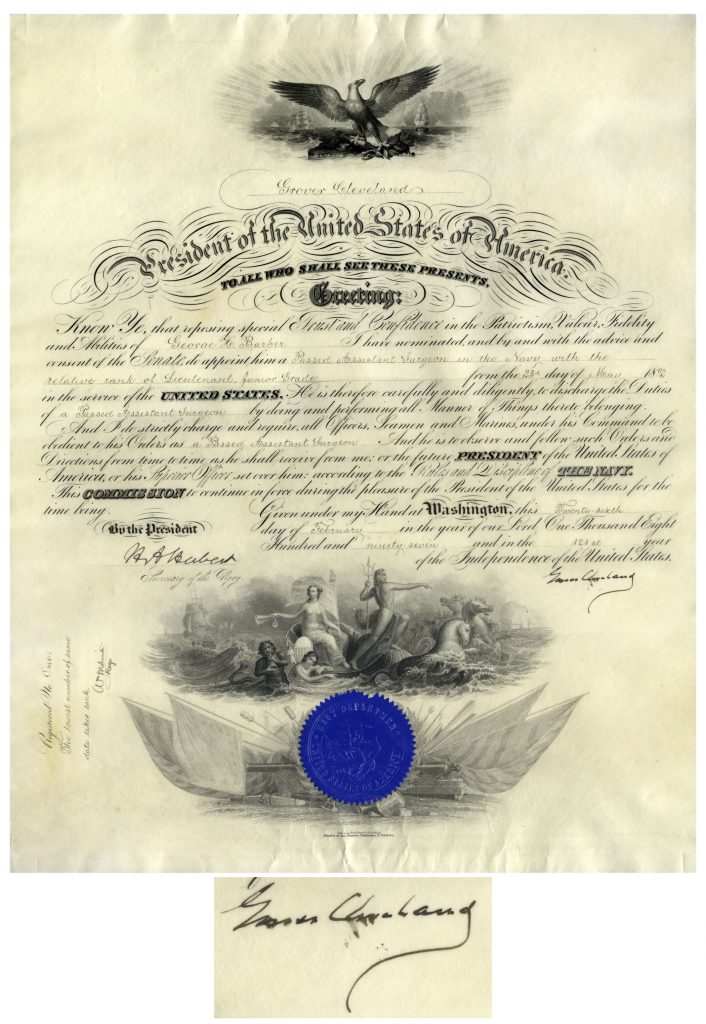 Grover Cleveland
President of the United States of America.
TO ALL WHO SHALL SEE THESE PRESENTS,
Greeting:
Know Ye, that reposing special Trust and Confidence in the Patriotism, Valour, Fidelity
and Abilities of George H. Barber I have nominated, and by and with the advice and
consent of the Senate, do appoint him a Passed Assistant Surgeon in the Navy with the
relative rank of Lieutenant, Junior Grade from the 23d day of May 189
in the service of the UNITED STATES. He is therefore carefully and diligently, to discharge the Duties
of a Passed Assistant Surgeon by doing and performing all Manner of Things thereto belonging.
And I do strictly charge and require, all Officers, Seamen and Marines, under his Command to be
obedient to his Orders as a Passed Assistant Surgeon. And he is to observe and follow such Orders and
Directions from time to time as he shall receive from me; or the future PRESIDENT of the United States of
America, or his Superior Officer set over him; according to the Rules and Discipline of THE NAVY.
This COMMISSION to continue in force during the pleasure of the President of the United States for the
time being.
Given under my Hand at Washington, this Twenty-sixth
day of February in the year of our Lord One Thousand Eight
Hundred and ninety-seven and in the 121st year
of the Independence of the United States.
By the President
H A Herbert
Secretary of the Navy.
Grover Cleveland
Registered No. One.
The lowest number of same
date takes rank.
NAVY DEPARTMENT
UNITED STATES OF AMERICA
Grover Cleveland